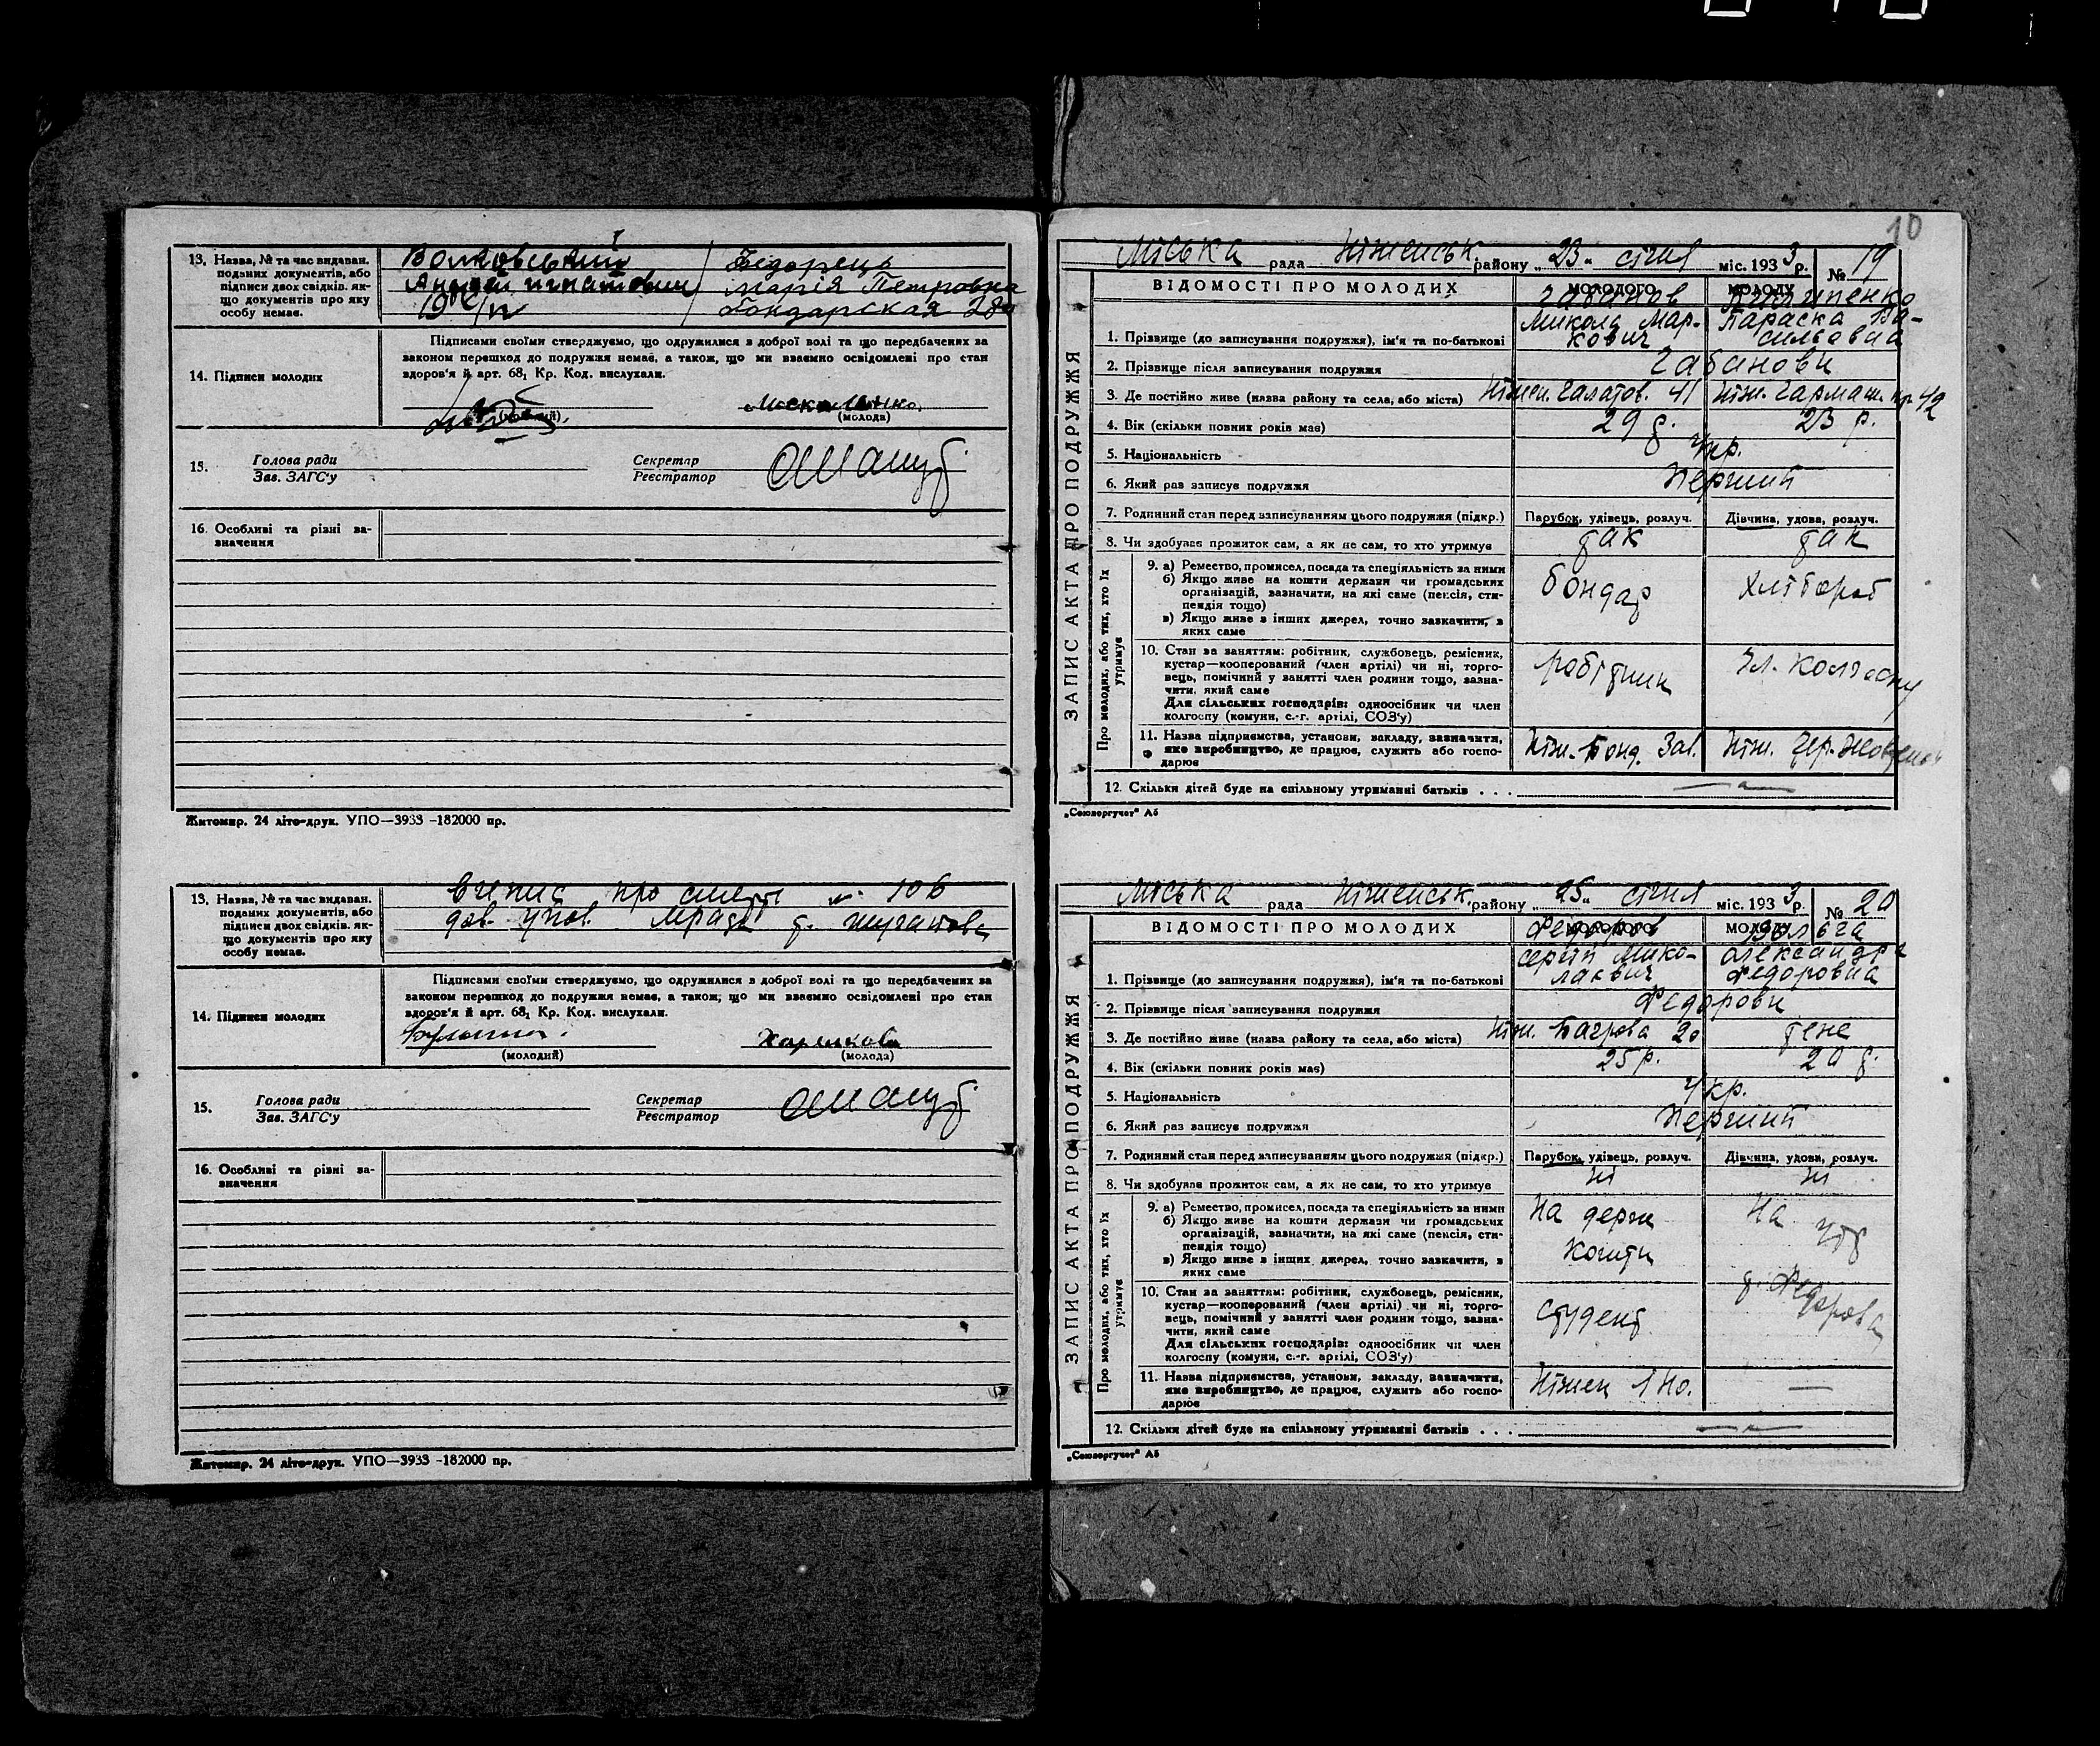 13. Назва, № та час видаван.
поданих документів, або
підписи двох свідків. як-
що документів про яку
особу немає.
Волковський
19
Марія Петровна
14. Підписи молодих
Підписами своїми стверджуємо, що одружилися з доброї волі та що передбачених за
законом перешкод до подружжя немає, а також, що ми взаємно освідомлені про стан
здоров'я й арт. 68₁ Кр. Код. вислухали.
Москаленко
(молодий) (молода)
15. Голова ради Секретар
Зав. ЗАГС'у Реєстратор
16. Особливі та різні за-
значення
Житомир. 24 літо-друк. УПО—3933 -182000 пр.
13. Назва, № та час видаван.
поданих документів, або
підписи двох свідків. як-
що документів про яку
особу немає.
про смерть № 106
14. Підписи молодих
Підписами своїми стверджуємо, що одружилися в доброї волі та що передбачених за
законом перешкод до подружжя немає, а також, що ми взаємно освідомлені про стан
здоров'я й арт. 68₁ Кр. Код. вислухали.
Харькова
(молодий) (молода)
15. Голова ради Секретар
Зав. ЗАГС'у Реєстратор
16. Особливі та різні за-
значення
Житомир. 24 літо-друк. УПО—3933 -182000 пр.
10
Міська рада Ніженськ. району „23“ січня міс. 1933 р. № 19
ЗАПИС АКТА ПРО ПОДРУЖЖЯ
ВІДОМОСТІ ПРО МОЛОДИХ МОЛОДОГО МОЛОДУ
Микола Мар- Параска Ва-
1. Прізвище (до записування подружжя), ім'я та по-батькові кович сильовна
2. Прізвище після записування подружжя Габанови
3. Де постійно живе (назва району та села, або міста) 41 42
4. Вік (скільки повних років має) 29 р. 23 р.
5. Національність Укр.
6. Який раз записує подружжя Перший
7. Родинний стан перед записуванням цього подружжя (підкр.) Парубок, удівець, розлуч. Дівчина, удова, розлуч.
8. Чи здобуває прожиток сам, а як не сам, то хто утримує так так
Про молодих, або тих, хто їх утримує
9. а) Ремество, промисел, посада та спеціяльність за ними
б) Якщо живе на кошти держави чи громадських
організацій, зазначити, на які саме (пенсія, сти-
пендія тощо)
в) Якщо живе з інших джерел, точно зазначити, з
яких саме
бондар хлібороб
10. Стан за заняттям: робітник, службовець, ремісник,
кустар—кооперований (член артілі) чи ні, торго-
вець, помічний у занятті член родини тощо, зазна-
чити, який саме
Для сільських господарів: одноосібник чи член
колгоспу (комуни, с.-г. артілі, СОЗ'у)
робітник Чл. колгоспу
11. Назва підприємства, установи, закладу, зазначити,
яке виробництво, де працює, служить або госпо-
дарює
Ніж. Бонд. Зав.
12. Скільки дітей буде на спільному утриманні батьків . . .
„Союзоргучет“ А5
Міська рада Ніженськ. району „25“ січня міс. 1933 р. № 20
ЗАПИС АКТА ПРО ПОДРУЖЖЯ
ВІДОМОСТІ ПРО МОЛОДИХ МОЛОДОГО МОЛОДУ
Федоров
Сергій Мико- Олександра
1. Прізвище (до записування подружжя), ім'я та по-батькові лаєвич Федоровна
2. Прізвище після записування подружжя Федорови
3. Де постійно живе (назва району та села, або міста) Ніж. Багрова 20 теж
4. Вік (скільки повних років має) 25 р. 20 р.
5. Національність Укр.
6. Який раз записує подружжя Перший
7. Родинний стан перед записуванням цього подружжя (підкр.) Парубок, удівець, розлуч. Дівчина, удова, розлуч.
8. Чи здобуває прожиток сам, а як не сам, то хто утримує ні ні
Про молодих, або тих, хто їх утримує
9. а) Ремество, промисел, посада та спеціяльність за ними
б) Якщо живе на кошти держави чи громадських
організацій, зазначити, на які саме (пенсія, сти-
пендія тощо)
в) Якщо живе з інших джерел, точно зазначити, з
яких саме
На держ На утр
кошти т. Федорова
10. Стан за заняттям: робітник, службовець, ремісник,
кустар—кооперований (член артілі) чи ні, торго-
вець, помічний у занятті член родини тощо, зазна-
чити, який саме
Для сільських господарів: одноосібник чи член
колгоспу (комуни, с.-г. артілі, СОЗ'у)
студент
11. Назва підприємства, установи, закладу, зазначити,
яке виробництво, де працює, служить або госпо-
дарює
Ніжен ІНО. —
12. Скільки дітей буде на спільному утриманні батьків . . .
„Союзоргучет“ А5